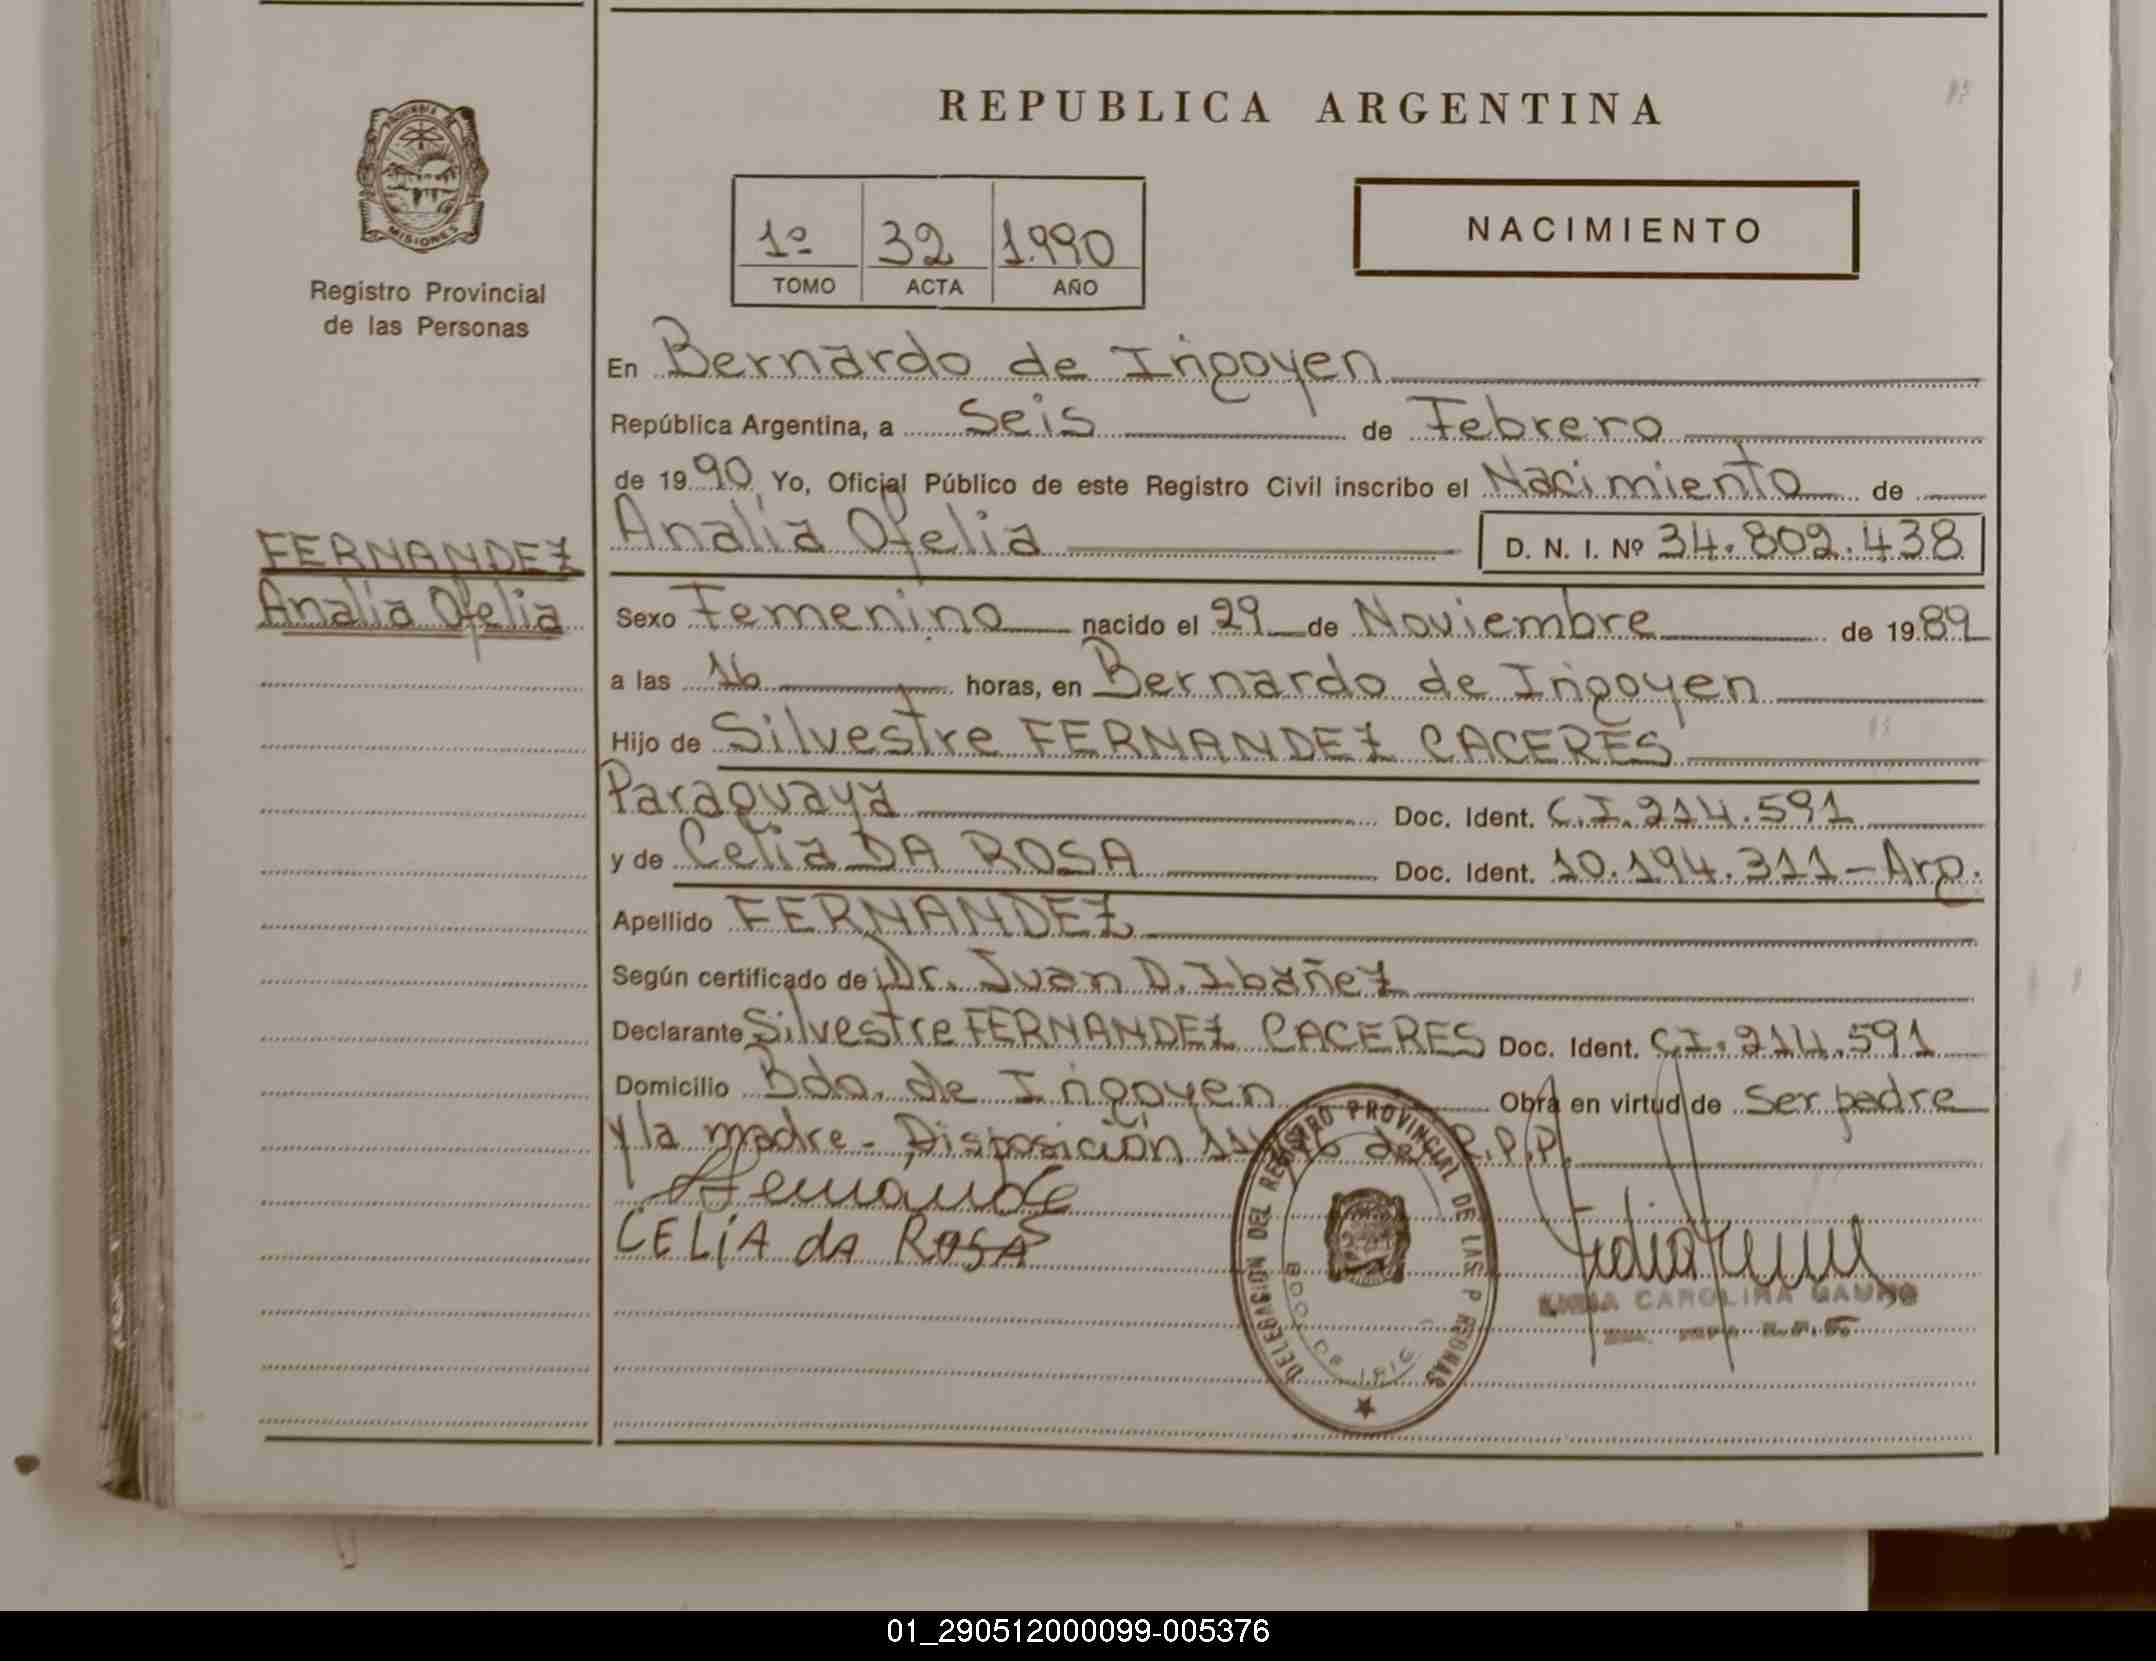 REPUBLICA ARGENTINA
PROVINCIA DE
MISIONES
Registro Provincial
de las Personas
1º 32 1.990
TOMO ACTA AÑO
NACIMIENTO
En Bernardo de Irigoyen
República Argentina, a Seis de Febrero
de 1990 Yo, Oficial Público de este Registro Civil inscribo el Nacimiento de
FERNANDEZ
Analia Ofelia
Analia Ofelia D. N. I. Nº 34.802.438
Sexo Femenino nacido el 29 de Noviembre de 1989
a las 16 horas, en Bernardo de Irigoyen
Hijo de Silvestre FERNANDEZ CACERES
Paraguaya Doc. Ident. C.I. 214.591
y de Celia DA ROSA Doc. Ident. 10.194.311-Arg.
Apellido FERNANDEZ
Según certificado de Dr. Juan D. Ibañez
Declarante Silvestre FERNANDEZ CACERES Doc. Ident. C.I. 214.591
Domicilio Bdo. de Irigoyen Obra en virtud de Ser padre
y la madre - Disposición del R.P.P.
CELiA dA ROSA
DELEGACION DEL REGISTRO PROVINCIAL DE LAS P
BDO. DE IRIG
CAROLINA
01_290512000099-005376